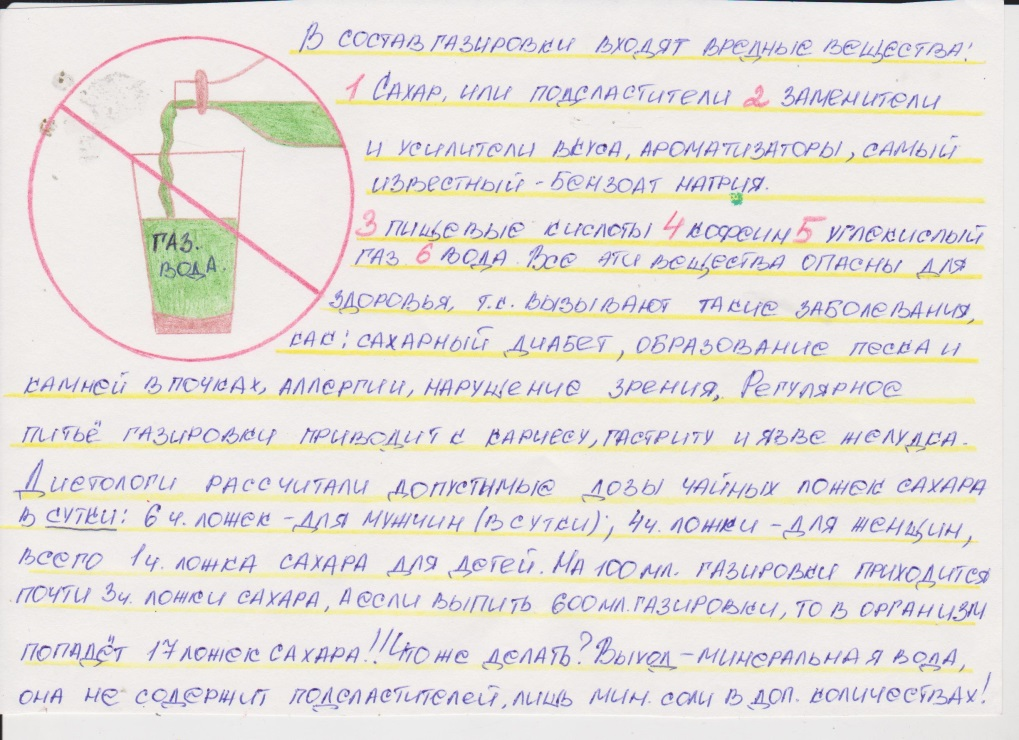 В состав газировки входят вредные вещества:
1 Сахар, или подсластители 2 заменители
и усилители вкуса, ароматизаторы, самый
известный - бензоат натрия.
3 пищевые кислоты 4 кофеин 5 углекислый
газ 6 вода. Все эти вещества опасны для
здоровья, т.к. вызывают такие заболевания,
как: сахарный диабет, образование песка и
камней в почках, аллергии, нарушение зрения. Регулярное
питьё газировки приводит к кариесу, гастриту и язве желудка.
Диетологи рассчитали допустимые дозы чайных ложек сахара
в сутки: 6 ч. ложек - для мужчин (в сутки); 4ч. ложки - для женщин,
всего 1ч. ложка сахара для детей. На 100мл. газировки приходится
почти 3ч. ложки сахара, а если выпить 600мл. газировки, то в организм
попадёт 17 ложек сахара!!! Что же делать? Выход - минеральная вода,
она не содержит подсластителей, лишь мин. соли в доп. количествах!
ГАЗ.
ВОДА.